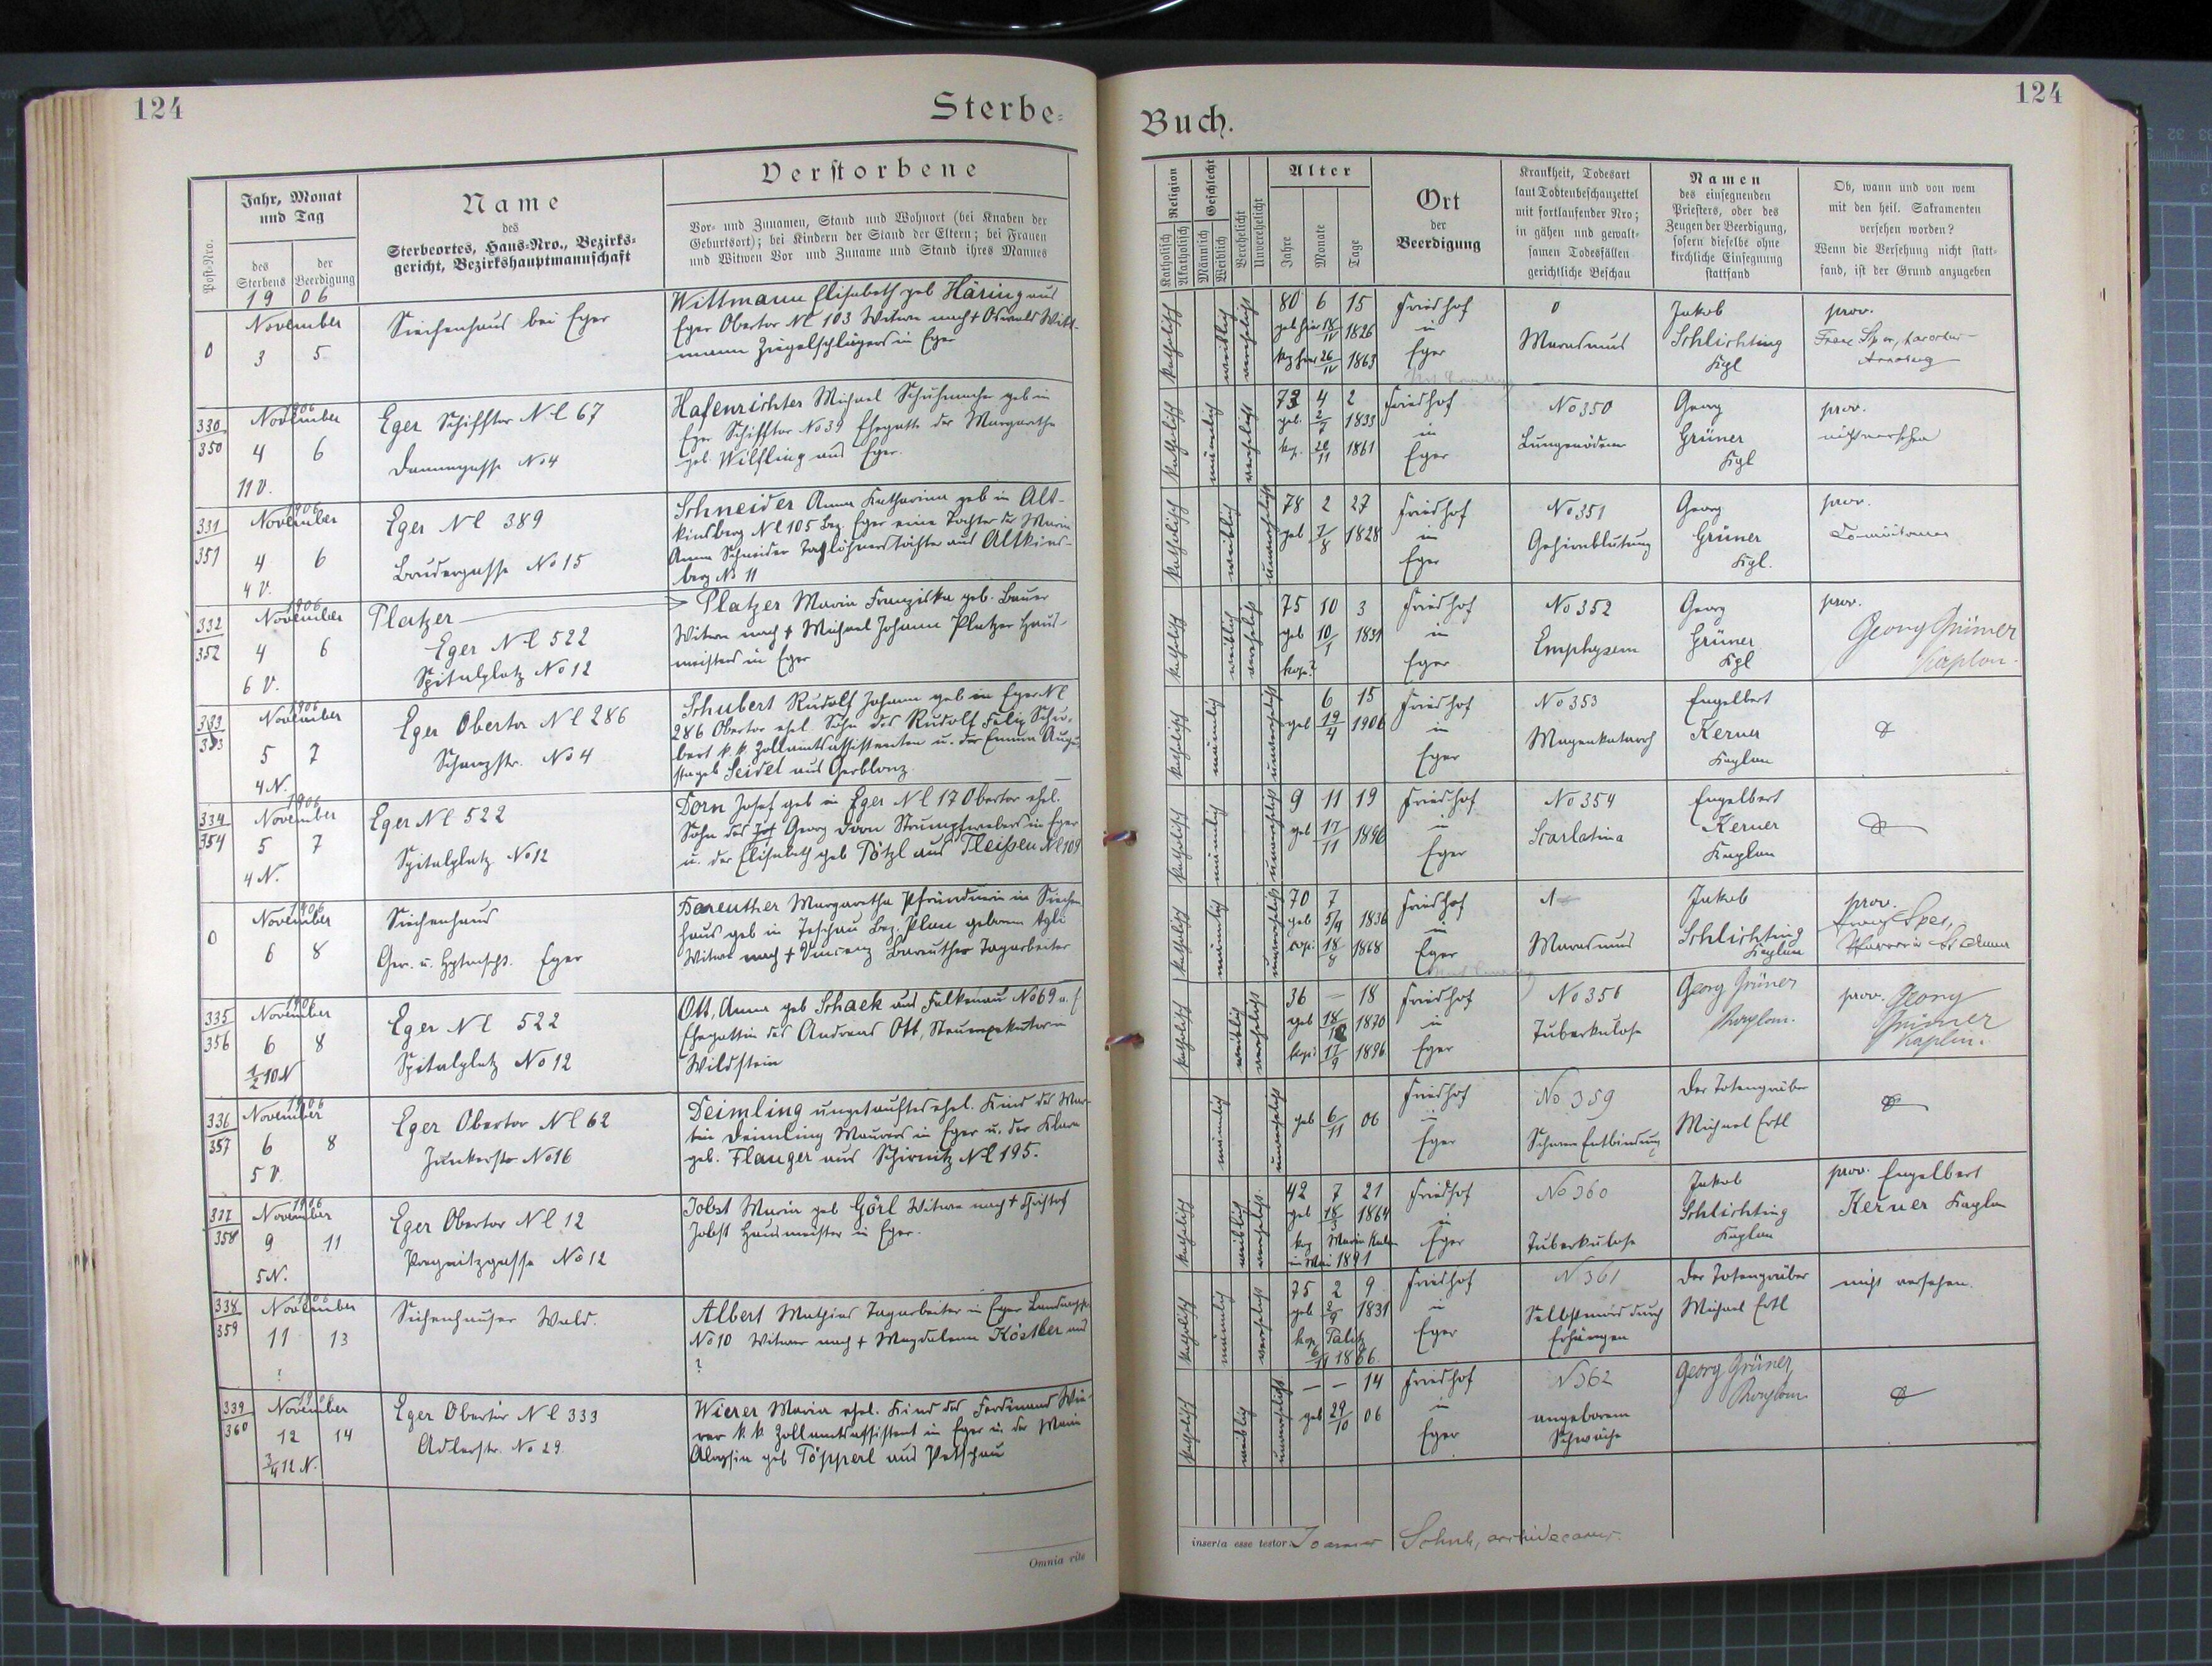 124
Sterbe=
Buch.
124
Post-Nro.
Jahr, Monat
und Tag
des
Sterbens
der
Beerdigung
19 06
Name
des
Sterbeortes, Haus-Nro., Bezirks-
gericht, Bezirkshauptmannschaft
Verstorbene
Vor- und Zunamen, Stand und Wohnort (bei Knaben der
Geburtsort); bei Kindern der Stand der Eltern; bei Frauen
und Witwen Vor und Zuname und Stand ihres Mannes
Religion
Katholisch
Akatholisch
Geschlecht
Männlich
Weiblich
Verehelicht
Unverehelicht
Alter
Jahre
Monate
Tage
Ort
der
Beerdigung
Krankheit, Todesart
laut Todtenbeschauzettel
mit fortlaufender Nro;
in gähen und gewalt-
samen Todesfällen
gerichtliche Beschau
Namen
des einsegnenden
Priesters, oder des
Zeugen der Beerdigung,
sofern dieselbe ohne
kirchliche Einsegnung
stattfand
Ob, wann und von wem
mit den heil. Sakramenten
versehen worden?
Wenn die Versehung nicht statt-
fand, ist der Grund anzugeben
0
November
3 5
Siechenhaus bei Eger
Wittmann Elisabeth geb Häring aus
Eger Obertor Nc 103 Witwe nach † Oswald Witt-
mann Ziegelschlägers in Eger
katholisch
weiblich
verehelicht
80 6 15
geb hier 18/IV 1826
kop hier 26/IV 1863
Friedhof
in
Eger
0
Marasmus
Jakob
Schlichting
Kpl
prov.
Franz Spes,
330
350
1906
November
4 6
11 V.
Eger Schifftor Nc 67
Dammgasse No 4
Hafenrichter Michael Schuhmacher geb in
Eger Schifftor No 39 Ehegatte der Margaretha
geb. Wilfling aus Eger.
katholisch
männlich
verehelicht
73 4 2
geb. 2/7 1833
kop. 20/11 1861
Friedhof
in
Eger
No 350
Lungenödem
Georg
Grüner
Kpl
prov.
nicht versehen
331
351
1906
November
4 6
4 V.
Eger Nc 389
Brudergasse No 15
Schneider Anna Katharina geb in Alt-
kinsberg Nc 105 Bez. Eger eine Tochter der Maria
Anna Schneider Taglöhnerstochter aus Altkins-
berg No 11
katholisch
weiblich
unverehelicht
78 2 27
geb 7/8 1828
Friedhof
in
Eger
No 351
Gehirnblutung
Georg
Grüner
Kpl.
prov.
332
352
1906
November
4 6
6 V.
Platzer
Eger Nc 522
Spitalplatz No 12
Platzer Maria Franziska geb. Bauer
Witwe nach † Michael Johann Platzer Haus-
meisters in Eger
katholisch
weiblich
verehelicht
75 10 3
geb 10/1 1831
kop ?
Friedhof
in
Eger
No 352
Emphysem
Georg
Grüner
Kpl
prov.
Georg Grüner
Kaplan.
333
353
1906
November
5 7
4 N.
Eger Obertor Nc 286
Schanzstr. No 4
Schubert Rudolf Johann geb in Eger Nc
286 Obertor ehel. Sohn des Rudolf Felix Schu-
bert k. k. Zollamtsassistenten u. der Emma Augu-
sta geb Seidel aus Gerblonz.
katholisch
männlich
unverehelicht
6 15
geb 19/4 1906
Friedhof
in
Eger
No 353
Magenkatarrh
Engelbert
Kerner
Kaplan
334
354
1906
November
5 7
4 N.
Eger Nc 522
Spitalplatz No 12
Dorn Josef geb in Eger Nc 17 Obertor ehel.
Sohn des Georg Dorn Strumpfwebers in Eger
u. der Elisabeth geb Pötzl aus Fleißen Nc 109
katholisch
männlich
unverehelicht
9 11 19
geb 17/11 1896
Friedhof
in
Eger
No 354
Scarlatina
Engelbert
Kerner
Kaplan
0
1906
November
6 8
Siechenhaus
Ger. u. Hptmsch. Eger
Bareuther Margaretha Pfründnerin in Siechen
haus geb in Teschau Bez. Plan geborene
Witwe nach † Vincenz Bareuther Tagarbeiter
katholisch
männlich
unverehelicht
70 7
geb 5/9 1836
copi: 18/8 1868
Friedhof
in
Eger
1
Marasmus
Jakob
Schlichting
Kaplan
prov.
Franz Spes,
335
356
1906
November
6 8
1/2 10 N
Eger Nc 522
Spitalplatz No 12
Ott, Anna geb Schack aus Falkenau No 69
Ehegattin des Andreas Ott, Steuerexekutor in
Wildstein
katholisch
weiblich
verehelicht
36 — 18
geb 18/10 1870
kop: 17/9 1896
Friedhof
in
Eger
No 356
Tuberkulose
Georg Grüner
Kaplan.
prov. Georg
Grüner
Kaplan.
336
357
1906
November
6 8
5 V.
Eger Obertor Nc 62
Junkerstr No 16
Deimling ungetauftes ehel. Kind des Mar-
tin Deimling Maurers in Eger u. der Klara
geb. Flauger aus Schirnitz Nc 195.
männlich
unverehelicht
geb 6/11 06
Friedhof
in
Eger
No 359
Schwere Entbindung
Der Totengräber
Michael Ertl
337
358
1906
November
9 11
5 N.
Eger Obertor Nc 12
Pregnitzgasse No 12
Jobst Maria geb Görl Witwe nach † Christof
Jobst Hausmeister in Eger.
katholisch
weiblich
verehelicht
42 7 21
geb 18/3 1864
kop Maria Kulm
im Mai 1891
Friedhof
in
Eger
No 360
Tuberkulose
Jakob
Schlichting
Kaplan
prov. Engelbert
Kerner Kaplan
338
359
1906
November
11 13
?
Siechenhauser Wald.
Albert Mathias Tagarbeiter in Eger
No 10 Witwer nach † Magdalena Köstler aus
?
katholisch
männlich
verehelicht
75 2 9
geb 2/9 1831
kop. Palitz
6/11 1866.
Friedhof
in
Eger
N 361
Selbstmord durch
Erhängen
Der Totengräber
Michael Ertl
nicht versehen.
339
360
1906
November
12 14
3/4 12 N.
Eger Obertor Nc 333
Adlerstr. No 29.
Wierer Maria ehel. Kind des Ferdinand Wie-
rer k. k. Zollamtsassistent in Eger u. der Maria
Aloysia geb Töpperl aus Petschau
katholisch
weiblich
unverehelicht
— — 14
geb 29/10 06
Friedhof
in
Eger
N 362
angeborene
Schwäche
Georg Grüner,
Kaplan
Omnia rite
inserta esse testor: